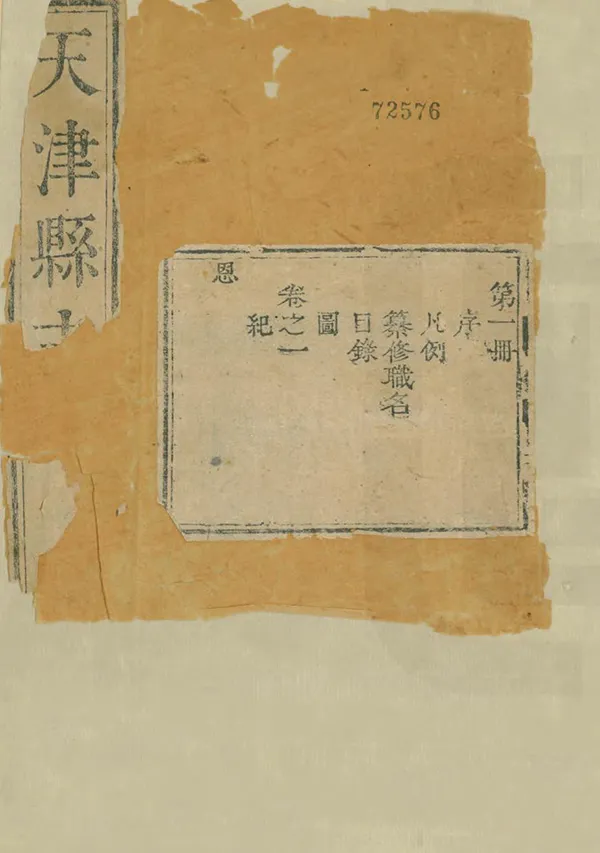 天津縣
72576
第一冊
序
凡例
纂修職名
目錄
圖
卷之一
紀
恩